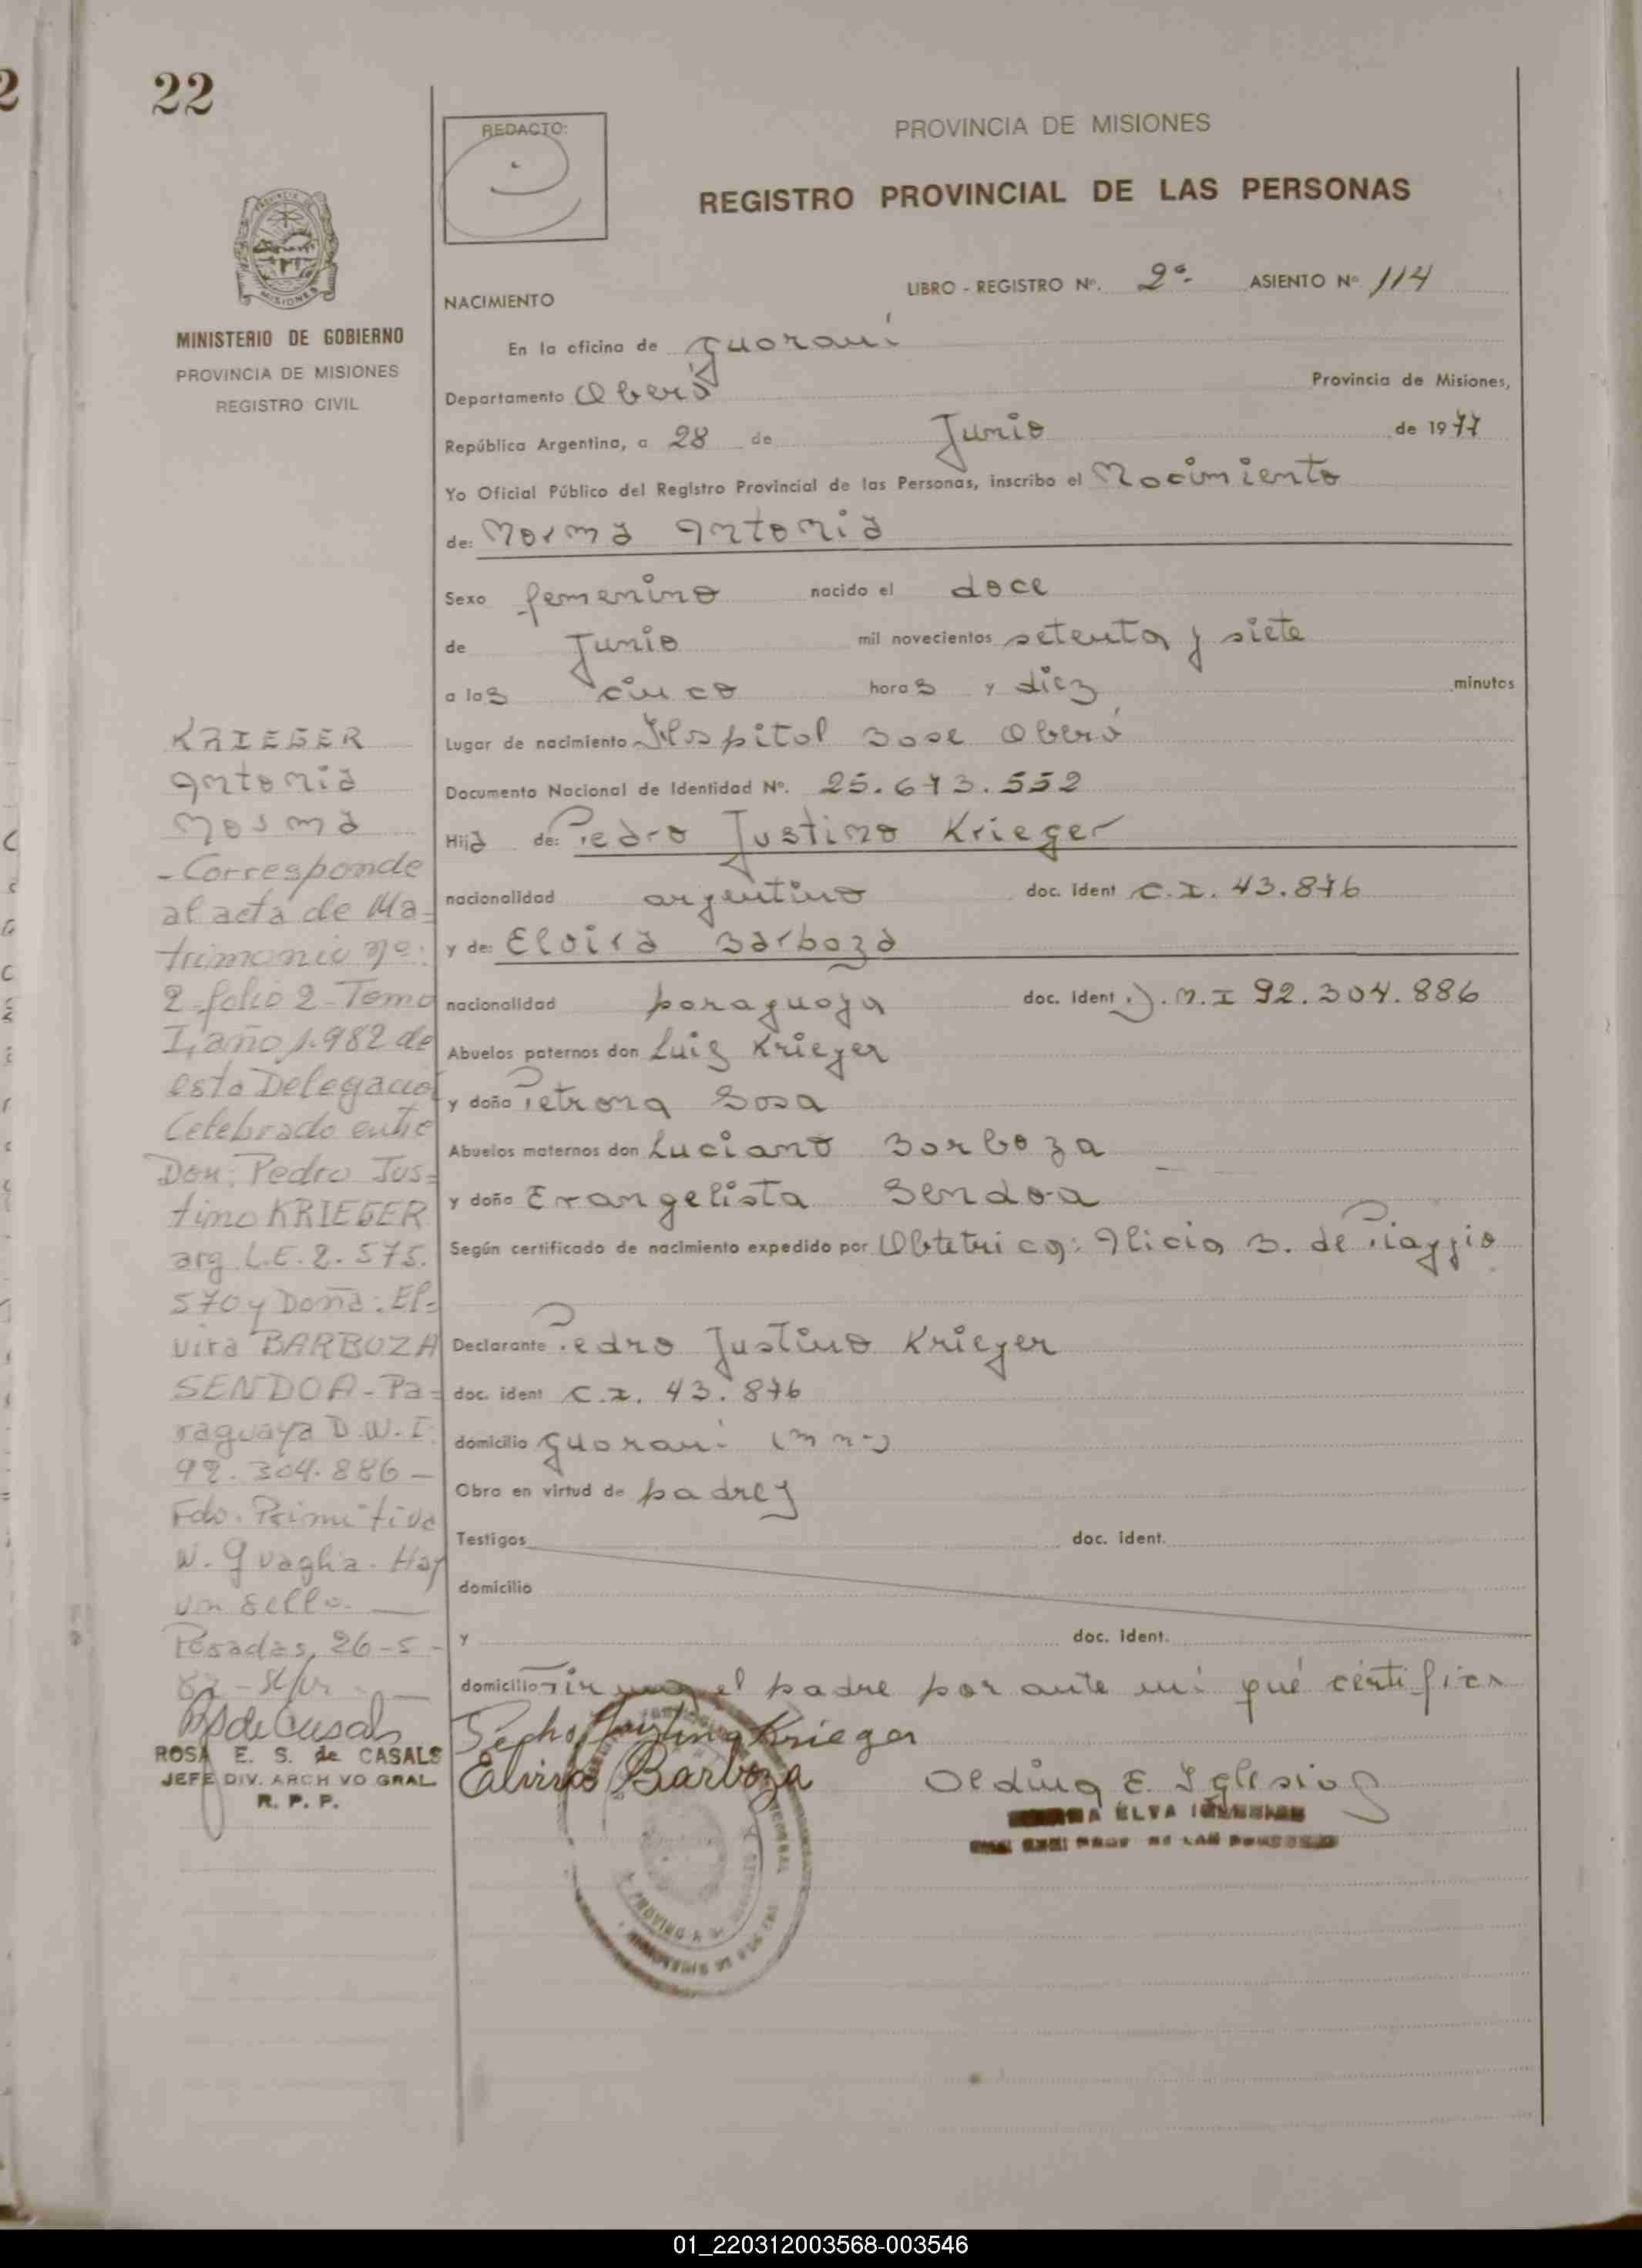 22
REDACTO:
PROVINCIA DE MISIONES
REGISTRO PROVINCIAL DE LAS PERSONAS
LIBRO - REGISTRO Nº. 2º- ASIENTO Nº 114
NACIMIENTO
MISIONES
MINISTERIO DE GOBIERNO
PROVINCIA DE MISIONES
REGISTRO CIVIL
En la oficina de Guaraní
Departamento Oberá Provincia de Misiones,
República Argentina, a 28 de Junio de 1977
Yo Oficial Público del Registro Provincial de las Personas, inscribo el Nacimiento
de: Norma Antonia
Sexo femenino nacido el doce
de Junio mil novecientos setenta y siete
a las cinco horas y diez minutos
Lugar de nacimiento Hospital Base Oberá
Documento Nacional de Identidad Nº. 25.673.552
Hija de: Pedro Justino Krieger
nacionalidad argentino doc. ident C.I. 43.876
y de: Elvira Barboza
nacionalidad paraguaya doc. ident D.N.I 92.304.886
Abuelos paternos don Luis Krieger
y doña Petrona Sosa
Abuelos maternos don Luciano Barboza
y doña Evangelista Sendoa
Según certificado de nacimiento expedido por Obtetrica: Alicia B. de Piaggio
Declarante Pedro Justino Krieger
doc. ident C.I. 43.876
domicilio Guaraní (mns)
Obra en virtud de padre
Testigos doc. ident.
domicilio
y doc. ident.
domicilio Firma el padre por ante mí que certifica
Pedro Justino Krieger
Elvira Barboza
Oldina E. Iglesias
ELVA
KRIEGER
Antonia
Norma
- Corresponde
al acta de Ma-
trimonio nº:
2-folio 2-Tomo
I, año 1.982 de
esta Delegació
Celebrado entre
Don: Pedro Jus-
tino KRIEGER
arg L.E. 2.575.
570 y Doña: El-
vira BARBOZA
SENDOA - Pa-
raguaya D.N.I.
92.304.886 -
Fdo. Primitiva
N. Quaglia. Hay
un sello.
Posadas, 26-5-
RSdeCasals
ROSA E. S. de CASALS
JEFE DIV. ARCHIVO GRAL.
R. P. P.
01_220312003568-003546